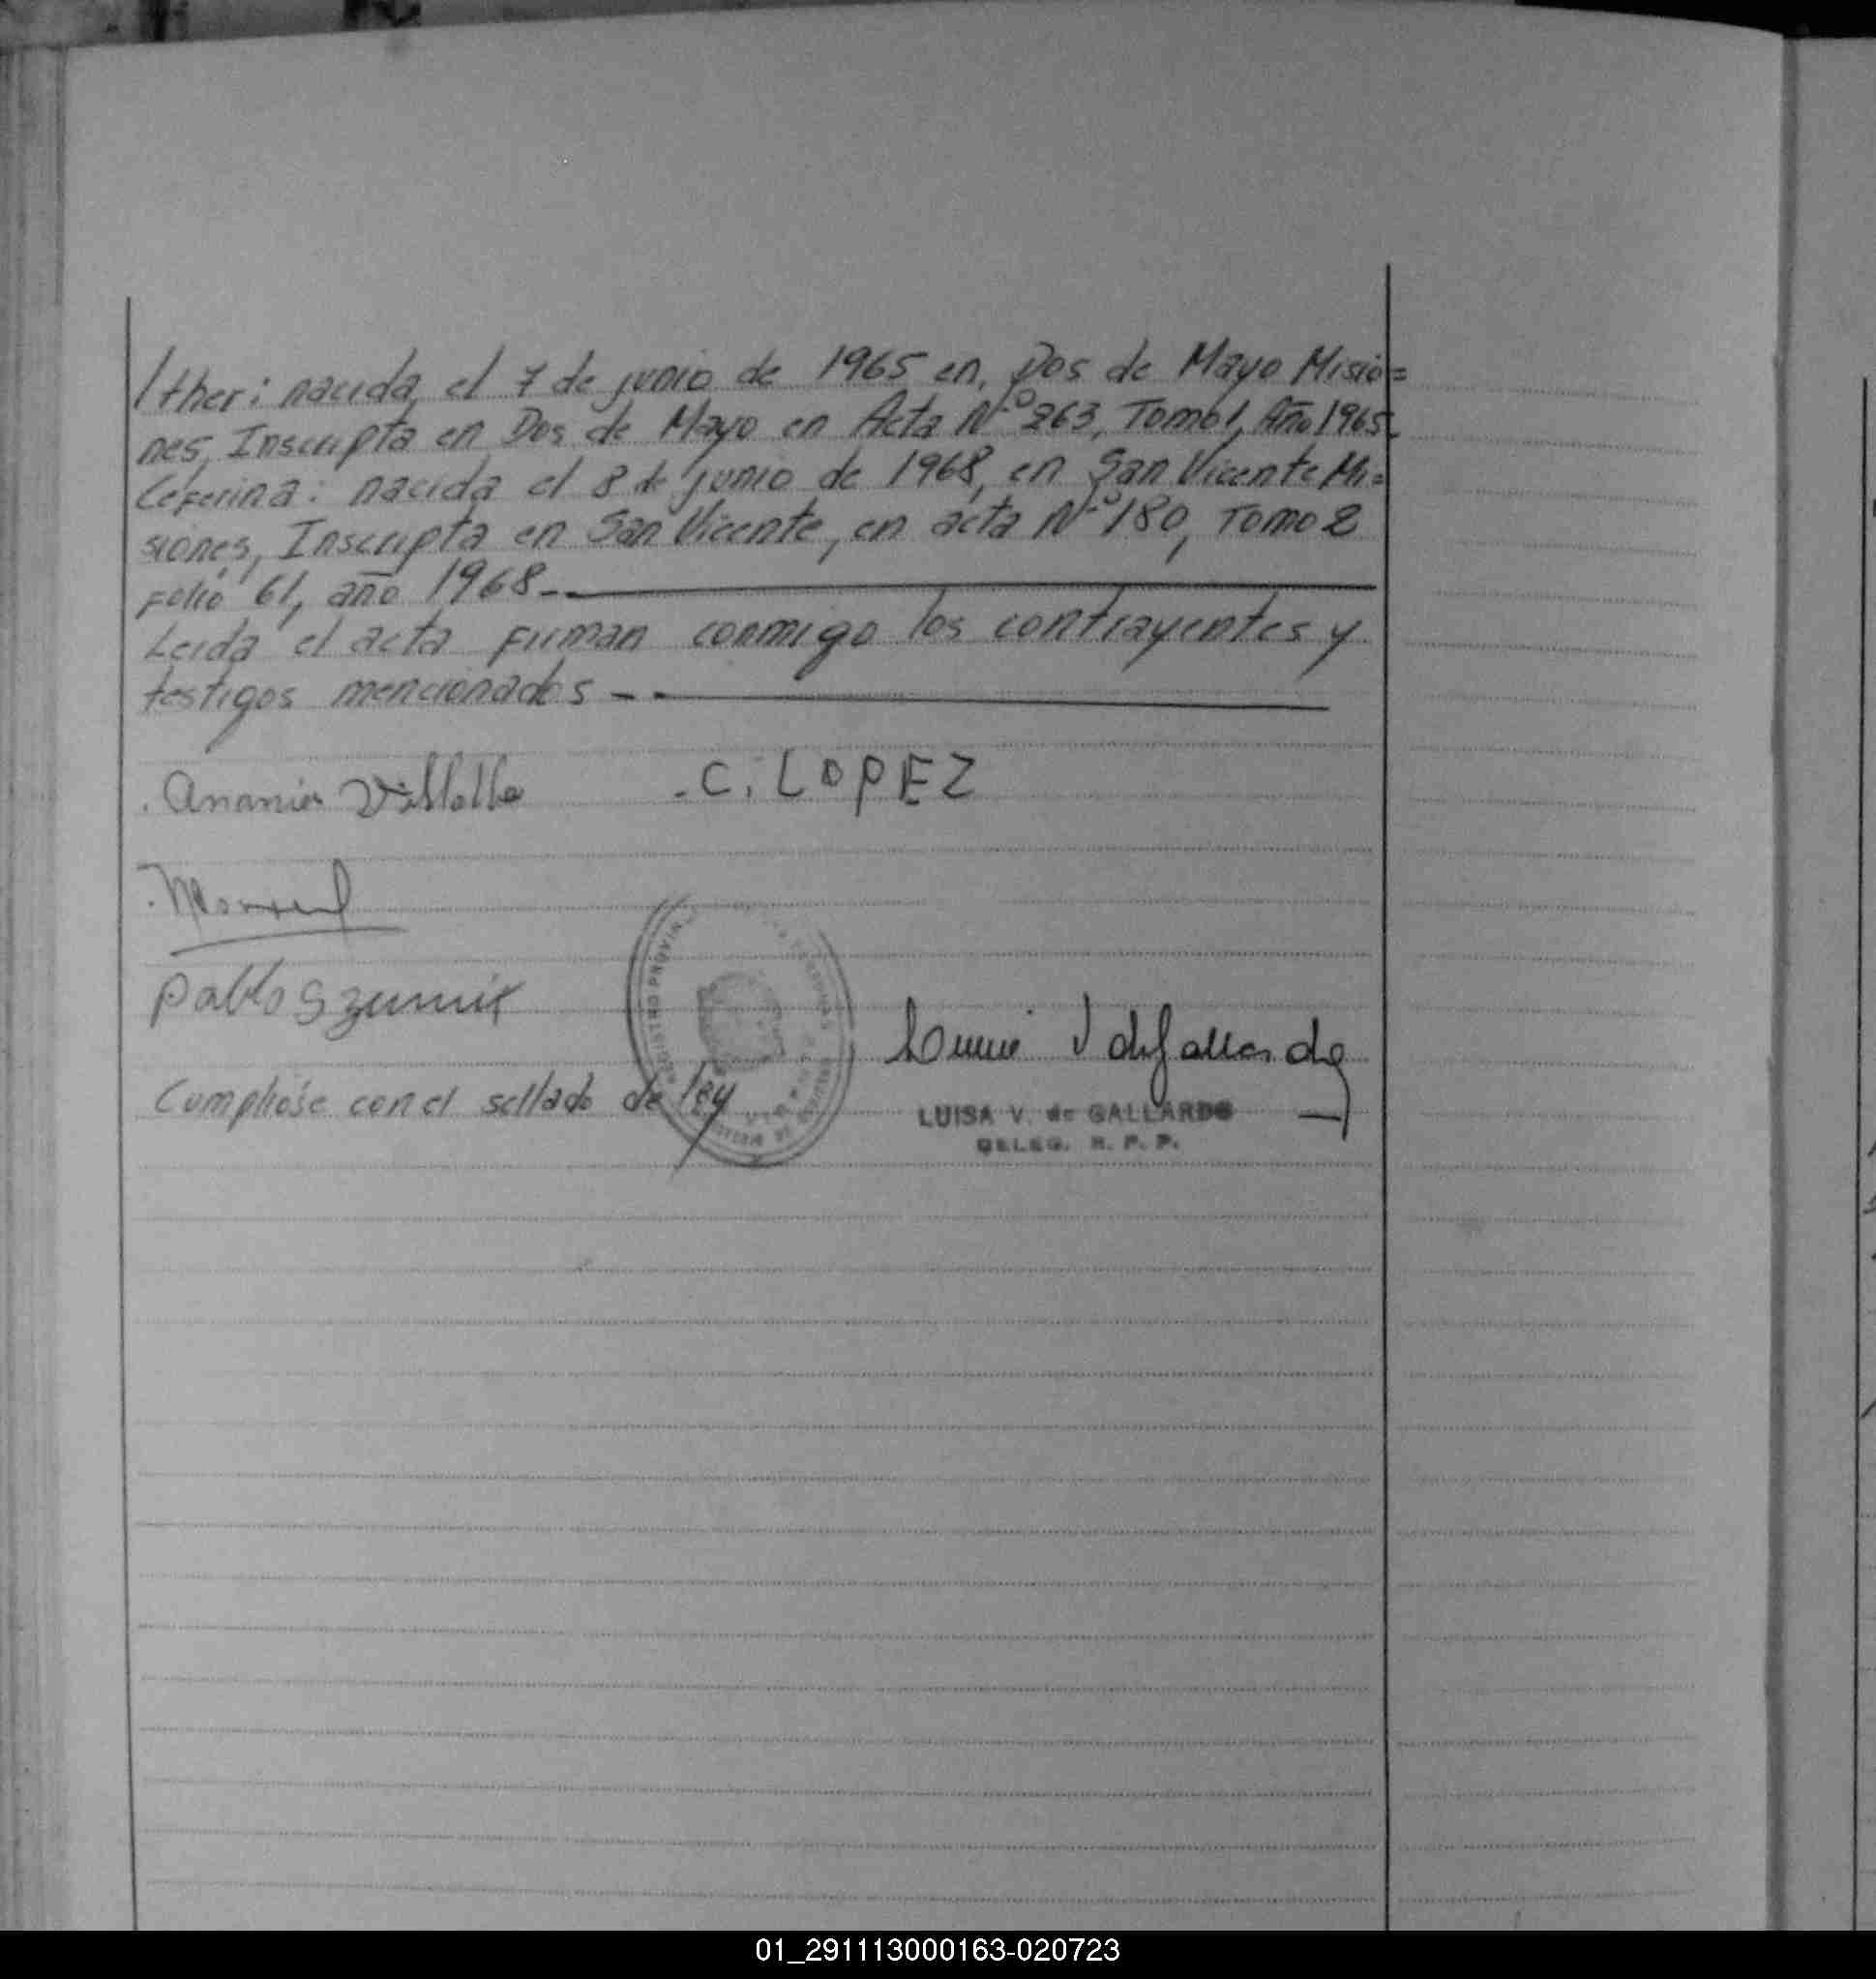 Ither: nacida el 7 de junio de 1965 en, Dos de Mayo Misio=
nes, Inscripta en Dos de Mayo en Acta Nº 263, Tomo 1, Año 1965.
Ceferina: nacida el 8 de junio de 1968, en San Vicente Mi=
siones, Inscripta en San Vicente, en acta Nº 180, Tomo 2
Folio 61, año 1968.-
Leida el acta firman conmigo los contrayentes y
testigos mencionados -.
. Ananias Villalba -C. LOPEZ
Pablo Szumik
Cumpliose con el sellado de ley
LUISA V. de GALLARDO
DELEG. R. P. P.
01_291113000163-020723